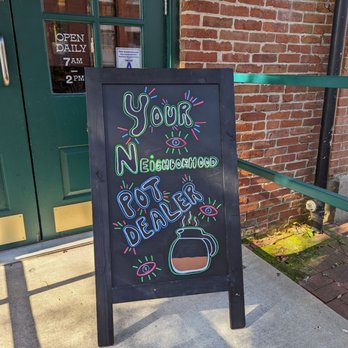 OPEN
DAILY
7AM
- 2PM
YOUR
NEIGHBORHOOD
POT
DEALER